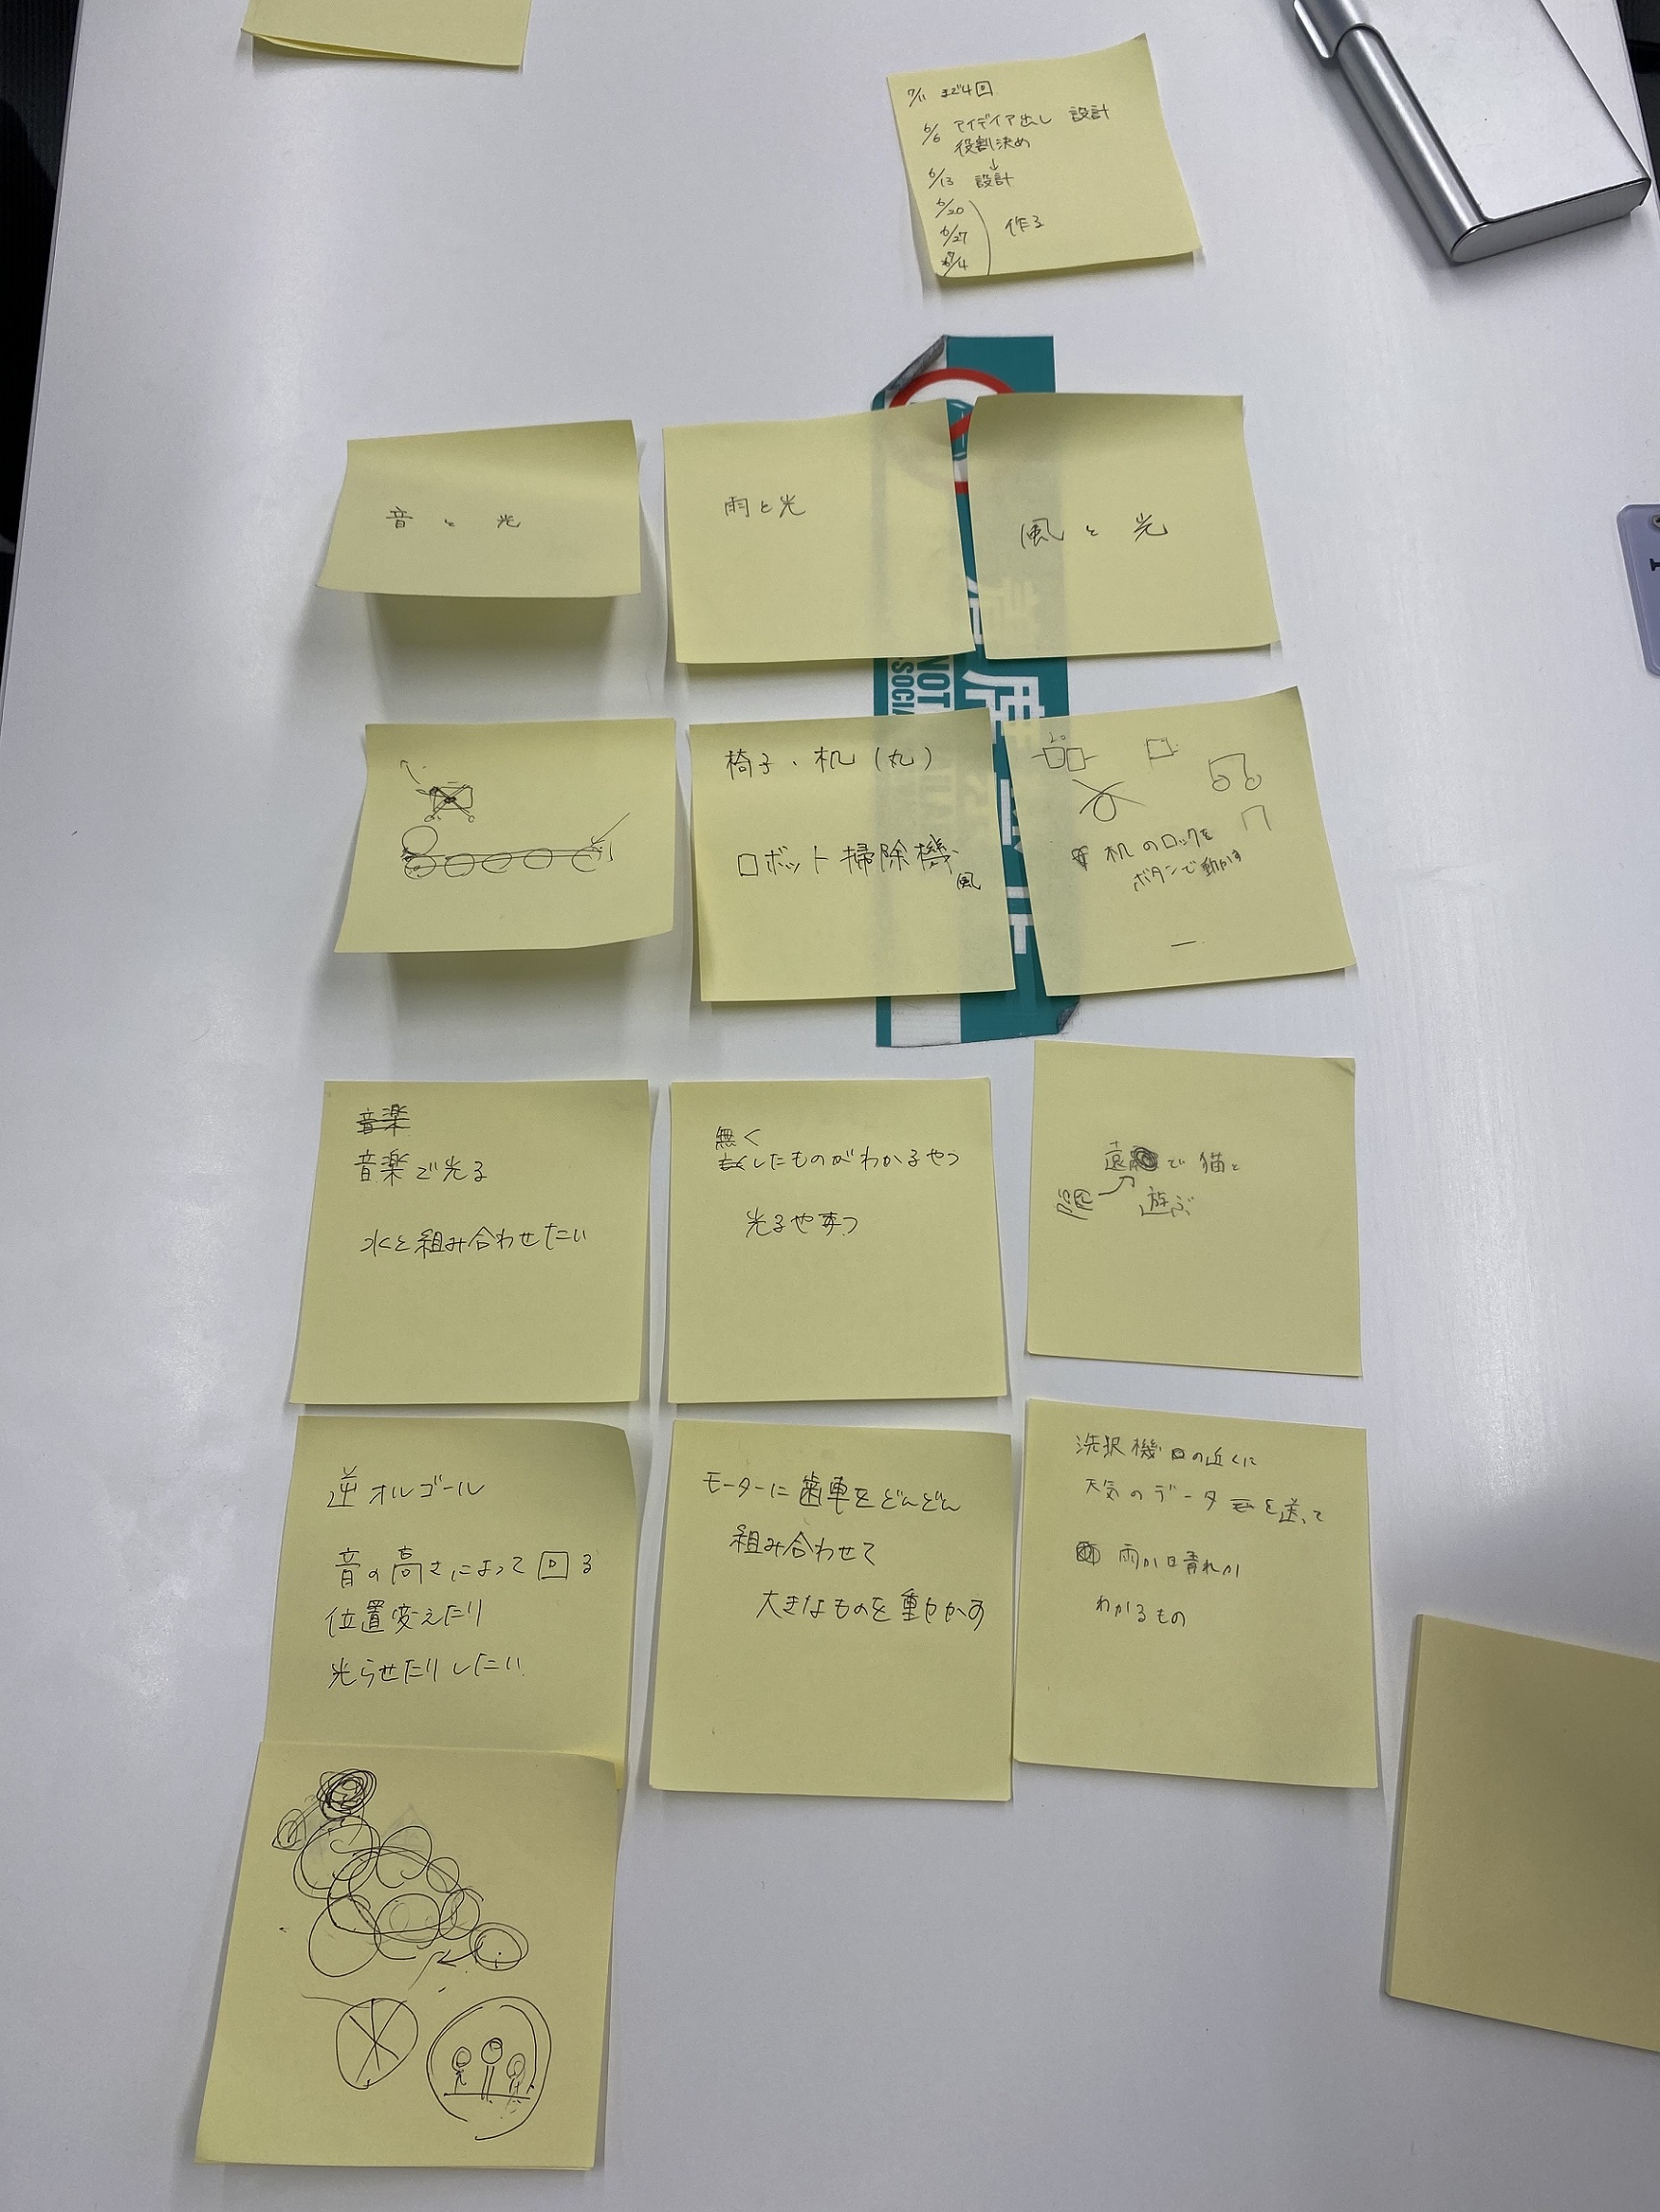 7/11 まで4回
6/6 アイデイア出し 設計
役割決め
↓
6/13 設計
6/20
6/27 作る
7/4
音と光
雨と光
風と光
NOT
SOCIA
椅子、机(丸)
ロボット掃除機
風
机のロックを
ボタンで動かす
音楽
音楽で光る
水と組み合わせたい
無く
したものがわかるやつ
光るやつ
遠隔で猫と
遊ぶ
逆オルゴール
音の高さによって回る
位置変えたり
光らせたりしたい
モーターに歯車をどんどん
組み合わせて
大きなものを動かす
洗択機の近くに
天気のデータを送って
雨か晴れか
わかるもの